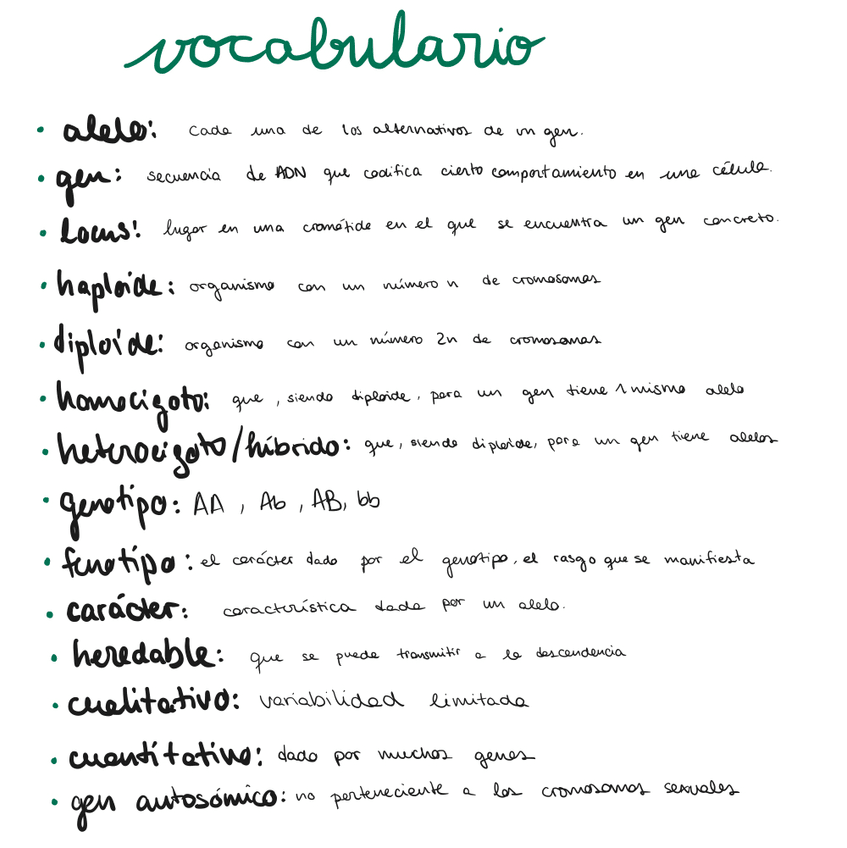 vocabulario
• alelo: cada una de las alternativas de un gen.
• gen: secuencia de ADN que codifica cierto comportamiento en una célula.
• Locus: lugar en una cromátide en el que se encuentra un gen concreto.
• haploide: organismo con un número n de cromosomas
• diploide: organismo con un número 2n de cromosomas
• homocigoto: que, siendo diploide, para un gen tiene 1 mismo alelo
• heterocigoto/híbrido: que, siendo diploide, para un gen tiene alelos
• genotipo: AA, Ab, AB, bb
• fenotipo: el carácter dado por el genotipo, el rasgo que se manifiesta
• carácter: característica dada por un alelo.
• heredable: que se puede transmitir a la descendencia
• cualitativo: variabilidad limitada
• cuantitativo: dado por muchos genes
• gen autosómico: no perteneciente a los cromosomas sexuales